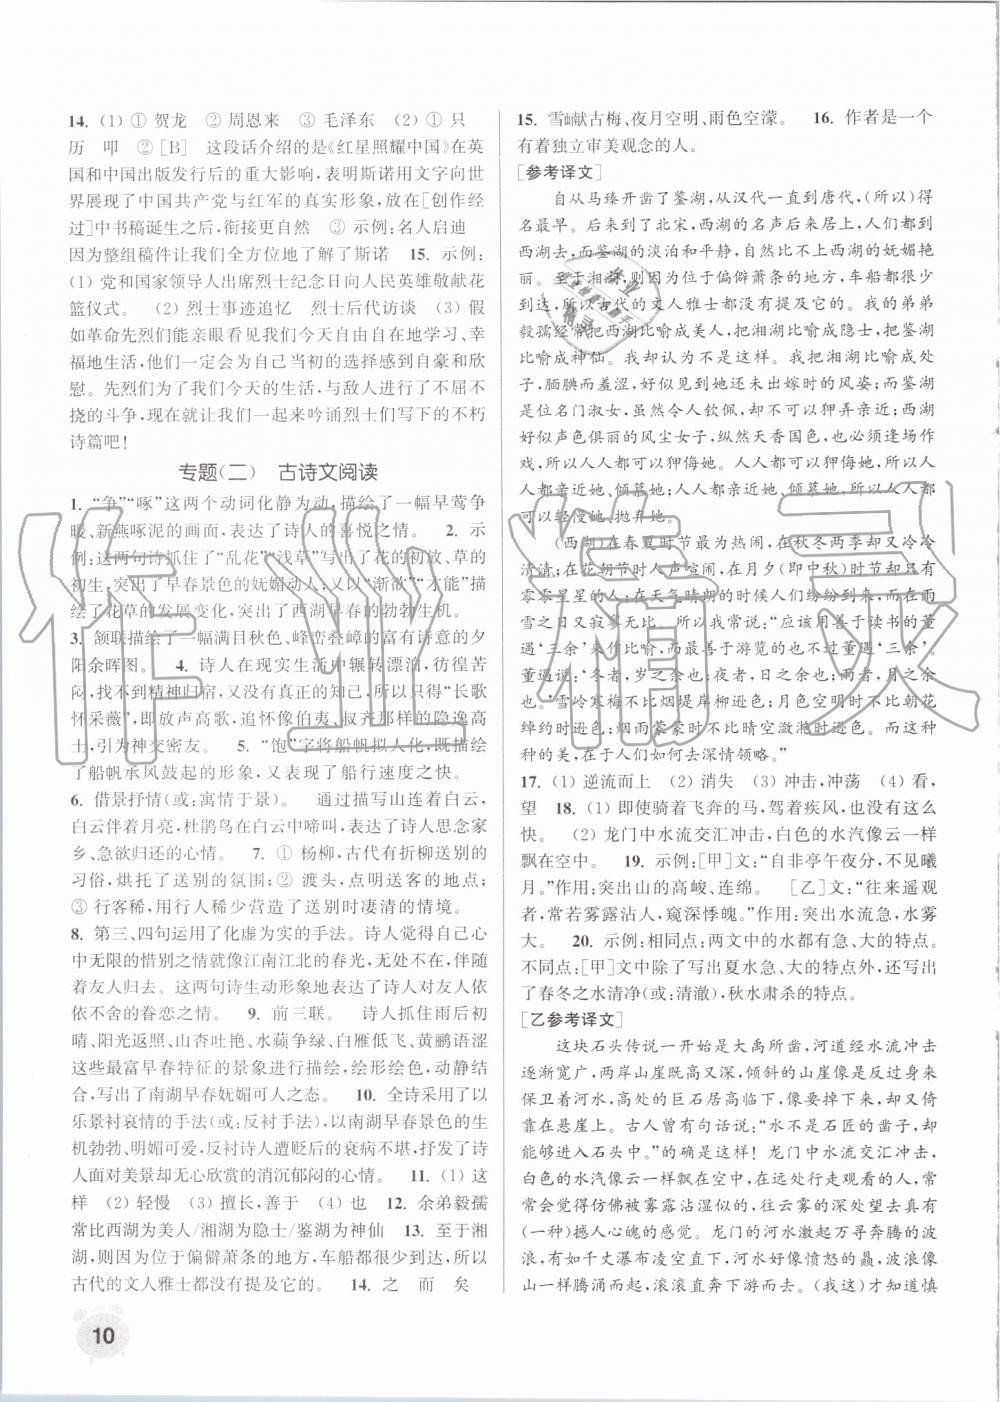 14. (1) ① 贺龙　② 周恩来　③ 毛泽东　(2) ① 只
历　叩　② [B]　这段话介绍的是《红星照耀中国》在英
国和中国出版发行后的重大影响,表明斯诺用文字向世
界展现了中国共产党与红军的真实形象,放在[创作经
过]中书稿诞生之后,衔接更自然　③ 示例:名人启迪
因为整组稿件让我们全方位地了解了斯诺　15. 示例:
(1) 党和国家领导人出席烈士纪念日向人民英雄敬献花
篮仪式。　(2) 烈士事迹追忆　烈士后代访谈　(3) 假
如革命先烈们能亲眼看见我们今天自由地学习、幸
福地生活,他们一定会为自己当初的选择感到自豪和欣
慰。先烈们为了我们今天的生活,与敌人进行了不屈不
挠的斗争,现在就让我们一起来吟诵烈士们写下的不朽
诗篇吧!
专题(二)　古诗文阅读
1. “争”“啄”这两个动词化静为动,描绘了一幅早莺争
暖、新燕啄泥的画面,表达了诗人的喜悦之情。　2. 示
例:这两句诗抓住了“乱花”“浅草”写出了花的初放、草的
初生,突出了早春景色的妩媚动人;又以“渐欲”“才能”描
绘了花草的发展变化,突出了西湖早春的勃勃生机。
3. 颔联描绘了一幅满目秋色、峰峦叠嶂的富有诗意的夕
阳余晖图。　4. 诗人在现实生活中辗转漂泊,彷徨苦
闷,找不到精神归宿,又没有真正的知己,只好用“长歌
怀采薇”,即放声高歌,追怀像伯夷、叔齐那样的隐逸高
士,引为神交密友。　5. “饱”字将船帆拟人化,既描绘
了船帆承风鼓起的形象,又写出了船行速度之快。
6. 借景抒情(或:寓情于景)。　通过描写山连着白云,
白云伴着月亮,杜鹃鸟在树中啼叫,表达了诗人思念家
乡、急欲归还的心情。　7. ① 杨柳,古代有折柳送别的
习俗,烘托了送别的氛围;② 渡头,点明送客的地点;
③ 行客稀,用行人稀少营造了送别时凄清的情境。
8. 第三、四句运用了化虚为实的手法。诗人觉得自己心
中无限的惜别之情就像江南江北的春光,无处不在,伴随
着友人归去。这两句诗生动形象地表达了诗人对友人依
依不舍的眷恋之情。　9. 前三联。　诗人抓住雨后初
晴、阳光返照、山杏吐艳、水蘋争绿、白雁低飞、黄鹂语涩
这些早春特征的景象进行描绘,绘形绘色,动静结
合,写出了南湖早春妩媚可人之态。　10. 全诗采用了以
乐景衬哀情的手法(或:反衬手法),以南湖早春景色的生
机勃勃、明媚可爱,反衬诗人遭贬后的衰病不堪,抒发了诗
人面对美景却无心欣赏的消沉郁闷的心情。　11. (1) 这
样　(2) 轻慢　(3) 擅长,善于　(4) 也　12. 余弟毅孺
常比西湖为美人/湘湖为隐士/鉴湖为神仙　13. 至于湘
湖,则因为位于偏僻萧条的地方,车船都很少到达,所以
古代的文人雅士都没有提及它的。　14. 之　而　矣
15. 雪巘古梅、夜月空明、雨色空濛。　16. 作者是一个
有着独立审美观念的人。
[参考译文]
自从马臻开凿了鉴湖,从汉代一直到唐代,(所以)得
名最早。后来到了北宋,西湖的名声后来居上,人们都到
西湖去,而鉴湖的淡泊和平静,自然是比不上西湖的妩媚艳
丽。至于湘湖,则因为位于偏僻萧条的地方,车船都很少
到达,所以古代的文人雅士都没有提及它的。我的弟弟
毅孺经常把西湖比喻成美人,把湘湖比喻成隐士,把鉴湖
比喻成神仙。我却认为不是这样。我把湘湖比喻成处
子,腼腆而羞涩,好似见到她还未出嫁时的风姿;而鉴湖
是位名门淑女,虽然令人钦佩,却不可以狎弄亲近;西湖
好似声色俱丽的风尘女子,纵然天香国色,也必须逢场作
戏,所以人人都可以狎侮她。人人都可以亲近她,所以人
人都可以轻慢她、抛弃她。
(西湖)在春夏时节最为热闹,在秋冬两季却又冷冷
清清;在花朝节时人声喧闹,在月夕(即中秋)时却只有
零零星星的人;在天气晴朗的时候人们纷纷到来,而在雨
雪之日又寂寥无比。所以我常说:“应该用善于读书的董
遇‘三余’来作比喻,而善于游览的也莫过于这‘三余’。
董遇说:‘冬者,岁之余也;夜者,日之余也;雨者,月之余
也。’雪岭寒梅不比烟堤岸柳逊色;月夜空明时不比朝花
绰约时逊色;烟雨蒙蒙时不比晴空潋滟时逊色。而这种
种的美,在于人们如何去深情领略。”
17. (1) 逆流而上　(2) 消失　(3) 冲击,冲荡　(4) 看,
望　18. (1) 即使骑着飞奔的马,驾着疾风,也没有这么
快。　(2) 龙门中水流交汇冲击,白色的水汽像云一样
飘在空中。　19. 示例:[甲]文:“自非亭午夜分,不见曦
月。”作用:突出山的高峻、连绵。　[乙]文:“往来遥观
者,常若雾露沾人,窥深悸魄。”作用:突出水流急,水雾
大。　20. 示例:相同点:两文中的水都有急、大的特点。
不同点:[甲]文中除了写出夏水急、大的特点外,还写出
了春冬之水清净(或:清澈),秋水肃杀的特点。
[乙参考译文]
这块石头传说一开始是大禹所凿,河道经水流冲击
逐渐宽广,两岸山崖断开,倾斜的山崖像是要倒下来在
保卫着河水,高处的巨石居高临下,像是要落下,却又倚
靠在悬崖上。古人曾有句话:“水不是石匠的凿子,却
能够流进石头中。”的确是这样!龙门中水流交汇冲击,
白色的水汽像云一样飘在空中,从远处走过观看的人,常
常会觉得仿佛被雾露沾湿似的,往云雾的深处望去更有
(一种)撼人心魄的感觉。龙门的河水激起万寻奔腾的波
浪,有如千丈瀑布凌空直下,河水好像愤怒的赑,波浪像
山一样腾涌而起,滚滚直奔下游而去。(我这)才知道慎
10
作业精灵